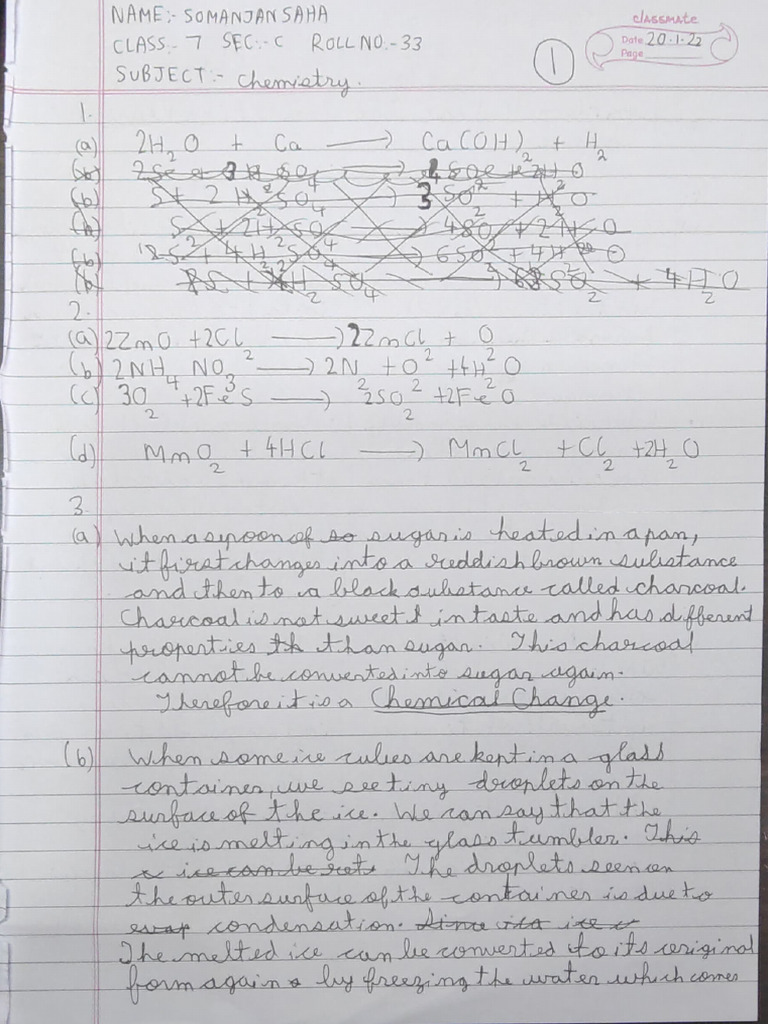 NAME:- SOMANJAN SAHA
CLASS:- 7 SEC:- C ROLL NO.-33
SUBJECT:- Chemistry.
classmate
Date 20.1.22
Page
1
1.
(a) 2H₂O + Ca ⟶ Ca(OH)₂ + H₂
2.
(a) 2ZmO + 2Cl₂ ⟶ 2ZmCl₂ + O₂
(b) 2NH₄NO₃ ⟶ 2N₂ + O₂ + 4H₂O
(c) 3O₂ + 2FeS ⟶ 2SO₂ + 2FeO
(d) MmO₂ + 4HCl ⟶ MmCl₂ + Cl₂ + 2H₂O
3.
(a) When a spoon of so sugar is heated in a pan,
it first changes into a reddish brown substance
and then to a black substance called charcoal.
Charcoal is not sweet in taste and has different
properties th than sugar. This charcoal
cannot be converted into sugar again.
Therefore it is a Chemical Change.
(b) When some ice cubes are kept in a glass
container, we see tiny droplets on the
surface of the ice. We can say that the
ice is melting in the glass tumbler. This
ice can be ret. The droplets seen on
the outer surface of the container is due to
evap condensation. Since ice
The melted ice can be converted to its original
form again by freezing the water which comes